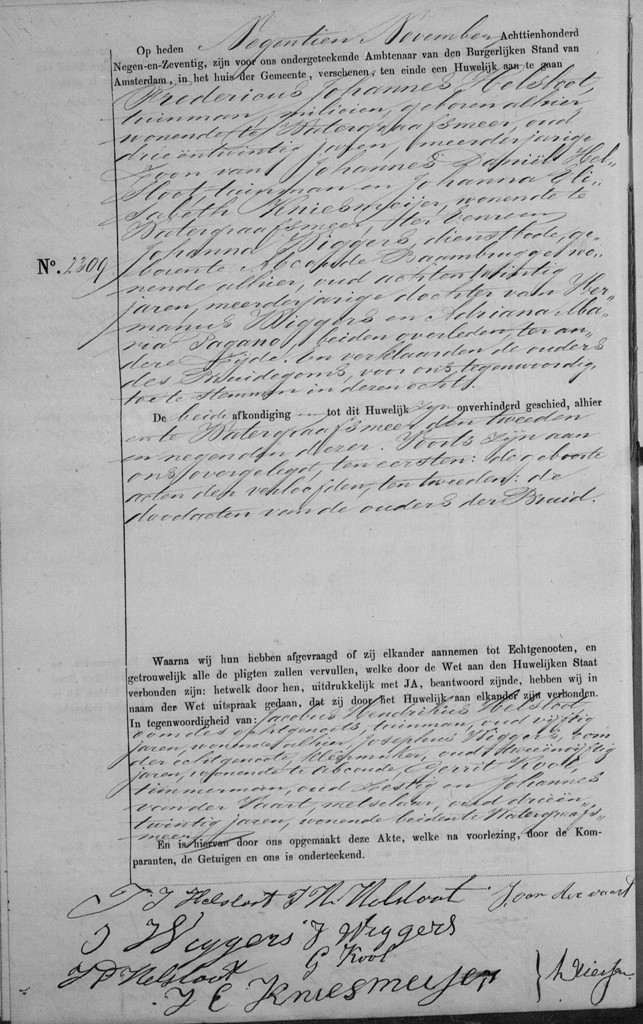 Op heden Negentien November Achttienhonderd
Negen-en-Zeventig, zijn voor ons ondergeteekende Ambtenaar van den Burgerlijken Stand van
Amsterdam, in het huis der Gemeente, verschenen, ten einde een Huwelijk aan te gaan
Fredericus Johannes Helsloot,
tuinman, milicien, geboren alhier
wonende te Watergraafsmeer, oud
drieëntwintig jaren, meerderjarige
Zoon van Johannes Daniël Hel-
sloot, tuinman en Johanna Eli-
sabeth Kniesmeijer, wonende te
Watergraafsmeer, ter eenre en
Johanna Wiggers, dienstbode, ge-
boren te Abcoude Baambrugge wo-
No. 2309
nende alhier, oud achtentwintig
jaren, meerderjarige dochter van Her-
manus Wiggers en Adriana Ma-
ria Pagano, beiden overleden ter an-
dere Zijde. En verklaarden de ouders
des Bruidegoms, voor ons tegenwoordig,
toe te stemmen in deren echt.
De beide afkondiging en tot dit Huwelijk zijn onverhinderd geschied, alhier
en te Watergraafsmeer den tweeden
en negenden dezer. Voorts zijn aan
ons overgelegd, ten eersten: de geboorte
acten der verloofden, ten tweeden: de
doodacten van de ouders der Bruid.
Waarna wij hun hebben afgevraagd of zij elkander aannemen tot Echtgenooten, en
getrouwelijk alle de pligten zullen vervullen, welke door de Wet aan den Huwelijken Staat
verbonden zijn: hetwelk door hen, uitdrukkelijk met JA, beantwoord zijnde, hebben wij in
naam der Wet uitspraak gedaan, dat zij door het Huwelijk aan elkander zijn verbonden.
In tegenwoordigheid van: Jacobus Hendrikus Helsloot,
oom des echtgenoots, tuinman, oud vijftig
jaren, wonende alhier, Josephus Wiggers, oom
der echtgenoote, klepmaker, oud tweeënvijftig
jaren, wonende te Abcoude, Gerrit Kool
timmerman, oud Zestig en Johannes
van der Vaart, metselaar, oud drieën-
twintig jaren, wonende beiden te Watergraafs-
meer.
En is hiervan door ons opgemaakt deze Akte, welke na voorlezing, door de Kom-
paranten, de Getuigen en ons is onderteekend.
F J Helsloot J H Helsloot J van der vaart
J Wiggers J Wiggers
J D Helsloot G Kool
J E Kniesmeijer